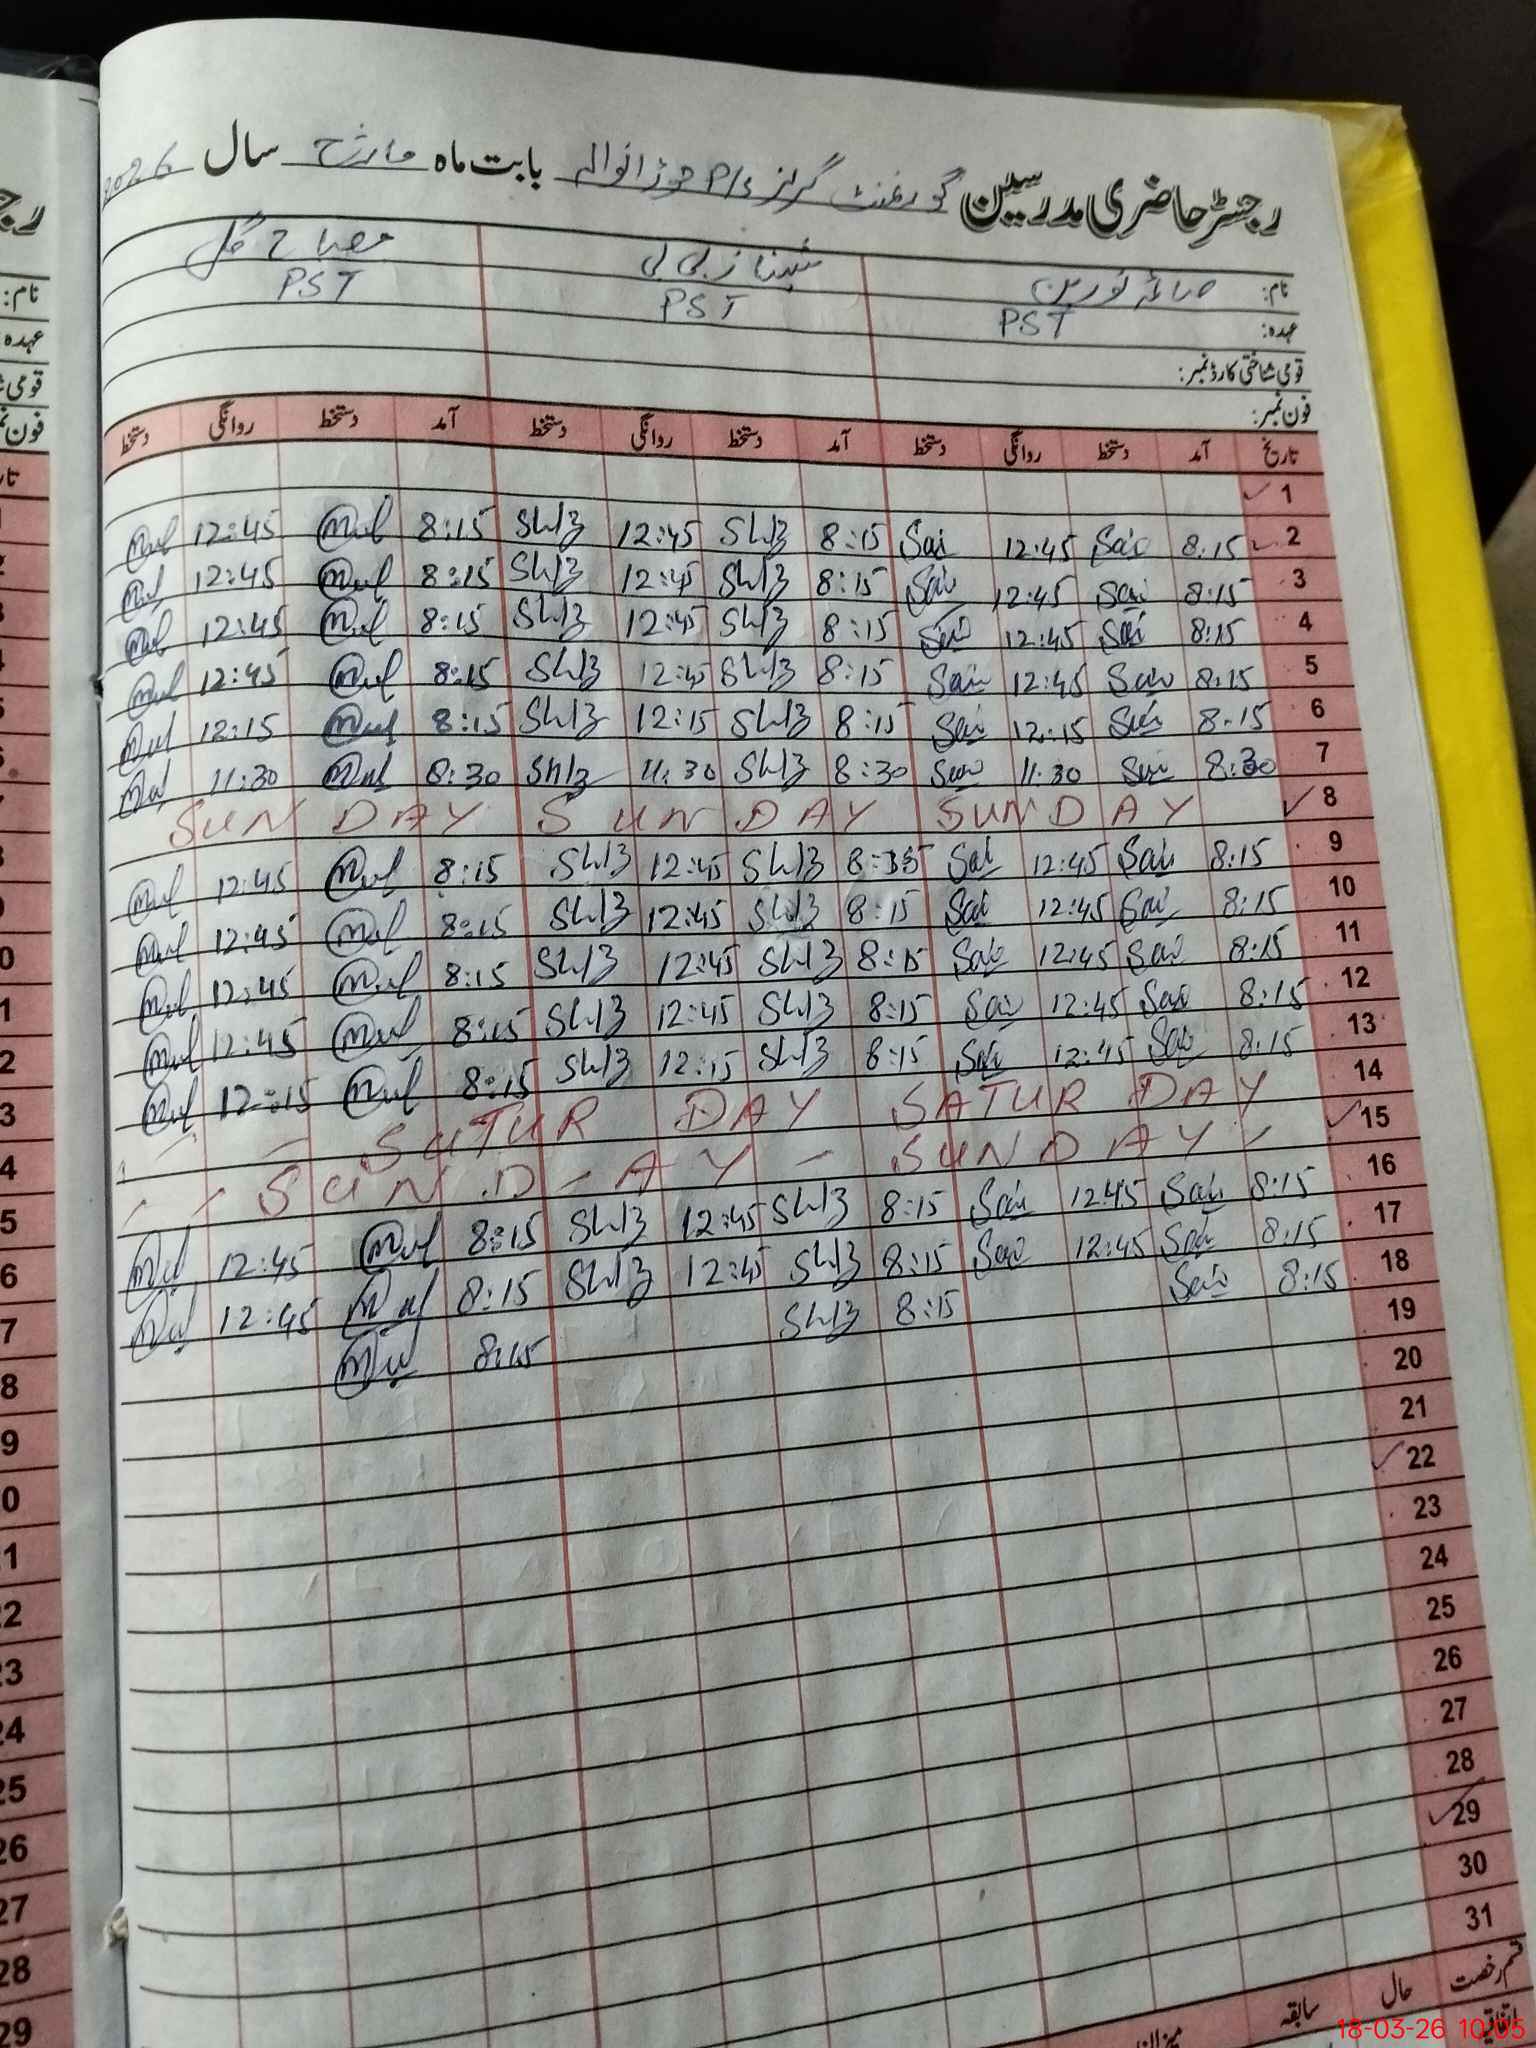 رجسٹر حاضری مدرسین گورنمنٹ گرلز P/S جوڑانوالہ بابت ماہ مارچ سال 2026
نام: صائمہ نورین شہناز بی بی مصباح گل
عہدہ: PST PST PST
قومی شناختی کارڈ نمبر:
فون نمبر:
تاریخ آمد دستخط روانگی دستخط آمد دستخط روانگی دستخط آمد دستخط روانگی دستخط
1
2 8:15 Sai 12:45 Sai 8:15 Sh13 12:45 Sh13 8:15 12:45
3 8:15 Sai 12:45 Sai 8:15 Sh13 12:45 Sh13 8:15 12:45
4 8:15 Sai 12:45 Sai 8:15 Sh13 12:45 Sh13 8:15 12:45
5 8:15 Sai 12:45 Sai 8:15 Sh13 12:45 Sh13 8:15 12:45
6 8:15 Sai 12:15 Sai 8:15 Sh13 12:15 Sh13 8:15 12:15
7 8:30 Sai 11:30 Sai 8:30 Sh13 11:30 Sh13 8:30 11:30
8 SUNDAY SUNDAY SUNDAY
9 8:15 Sai 12:45 Sai Sh13 12:45 Sh13 8:15 12:45
10 8:15 Sai 12:45 Sai 8:15 Sh13 12:45 Sh13 8:15 12:45
11 8:15 Sai 12:45 Sai 8:15 Sh13 12:45 Sh13 8:15 12:45
12 8:15 Sai 12:45 Sai 8:15 Sh13 12:45 Sh13 8:15 12:45
13 8:15 Sai 12:45 Sai 8:15 Sh13 12:15 Sh13 8:15 12:15
14 SATUR DAY SATUR DAY
15 SUND-AY - SUNDAY
16 8:15 Sai 12:45 Sai 8:15 Sh13 12:45 Sh13 8:15 12:45
17 8:15 Sai 12:45 Sai 8:15 Sh13 12:45 Sh13 8:15 12:45
18 8:15 Sai 8:15 Sh13 8:15
19
20
21
22
23
24
25
26
27
28
29
30
31
قسم رخصت حال سابقہ میزان
اتفاقیہ
18-03-26 10:05